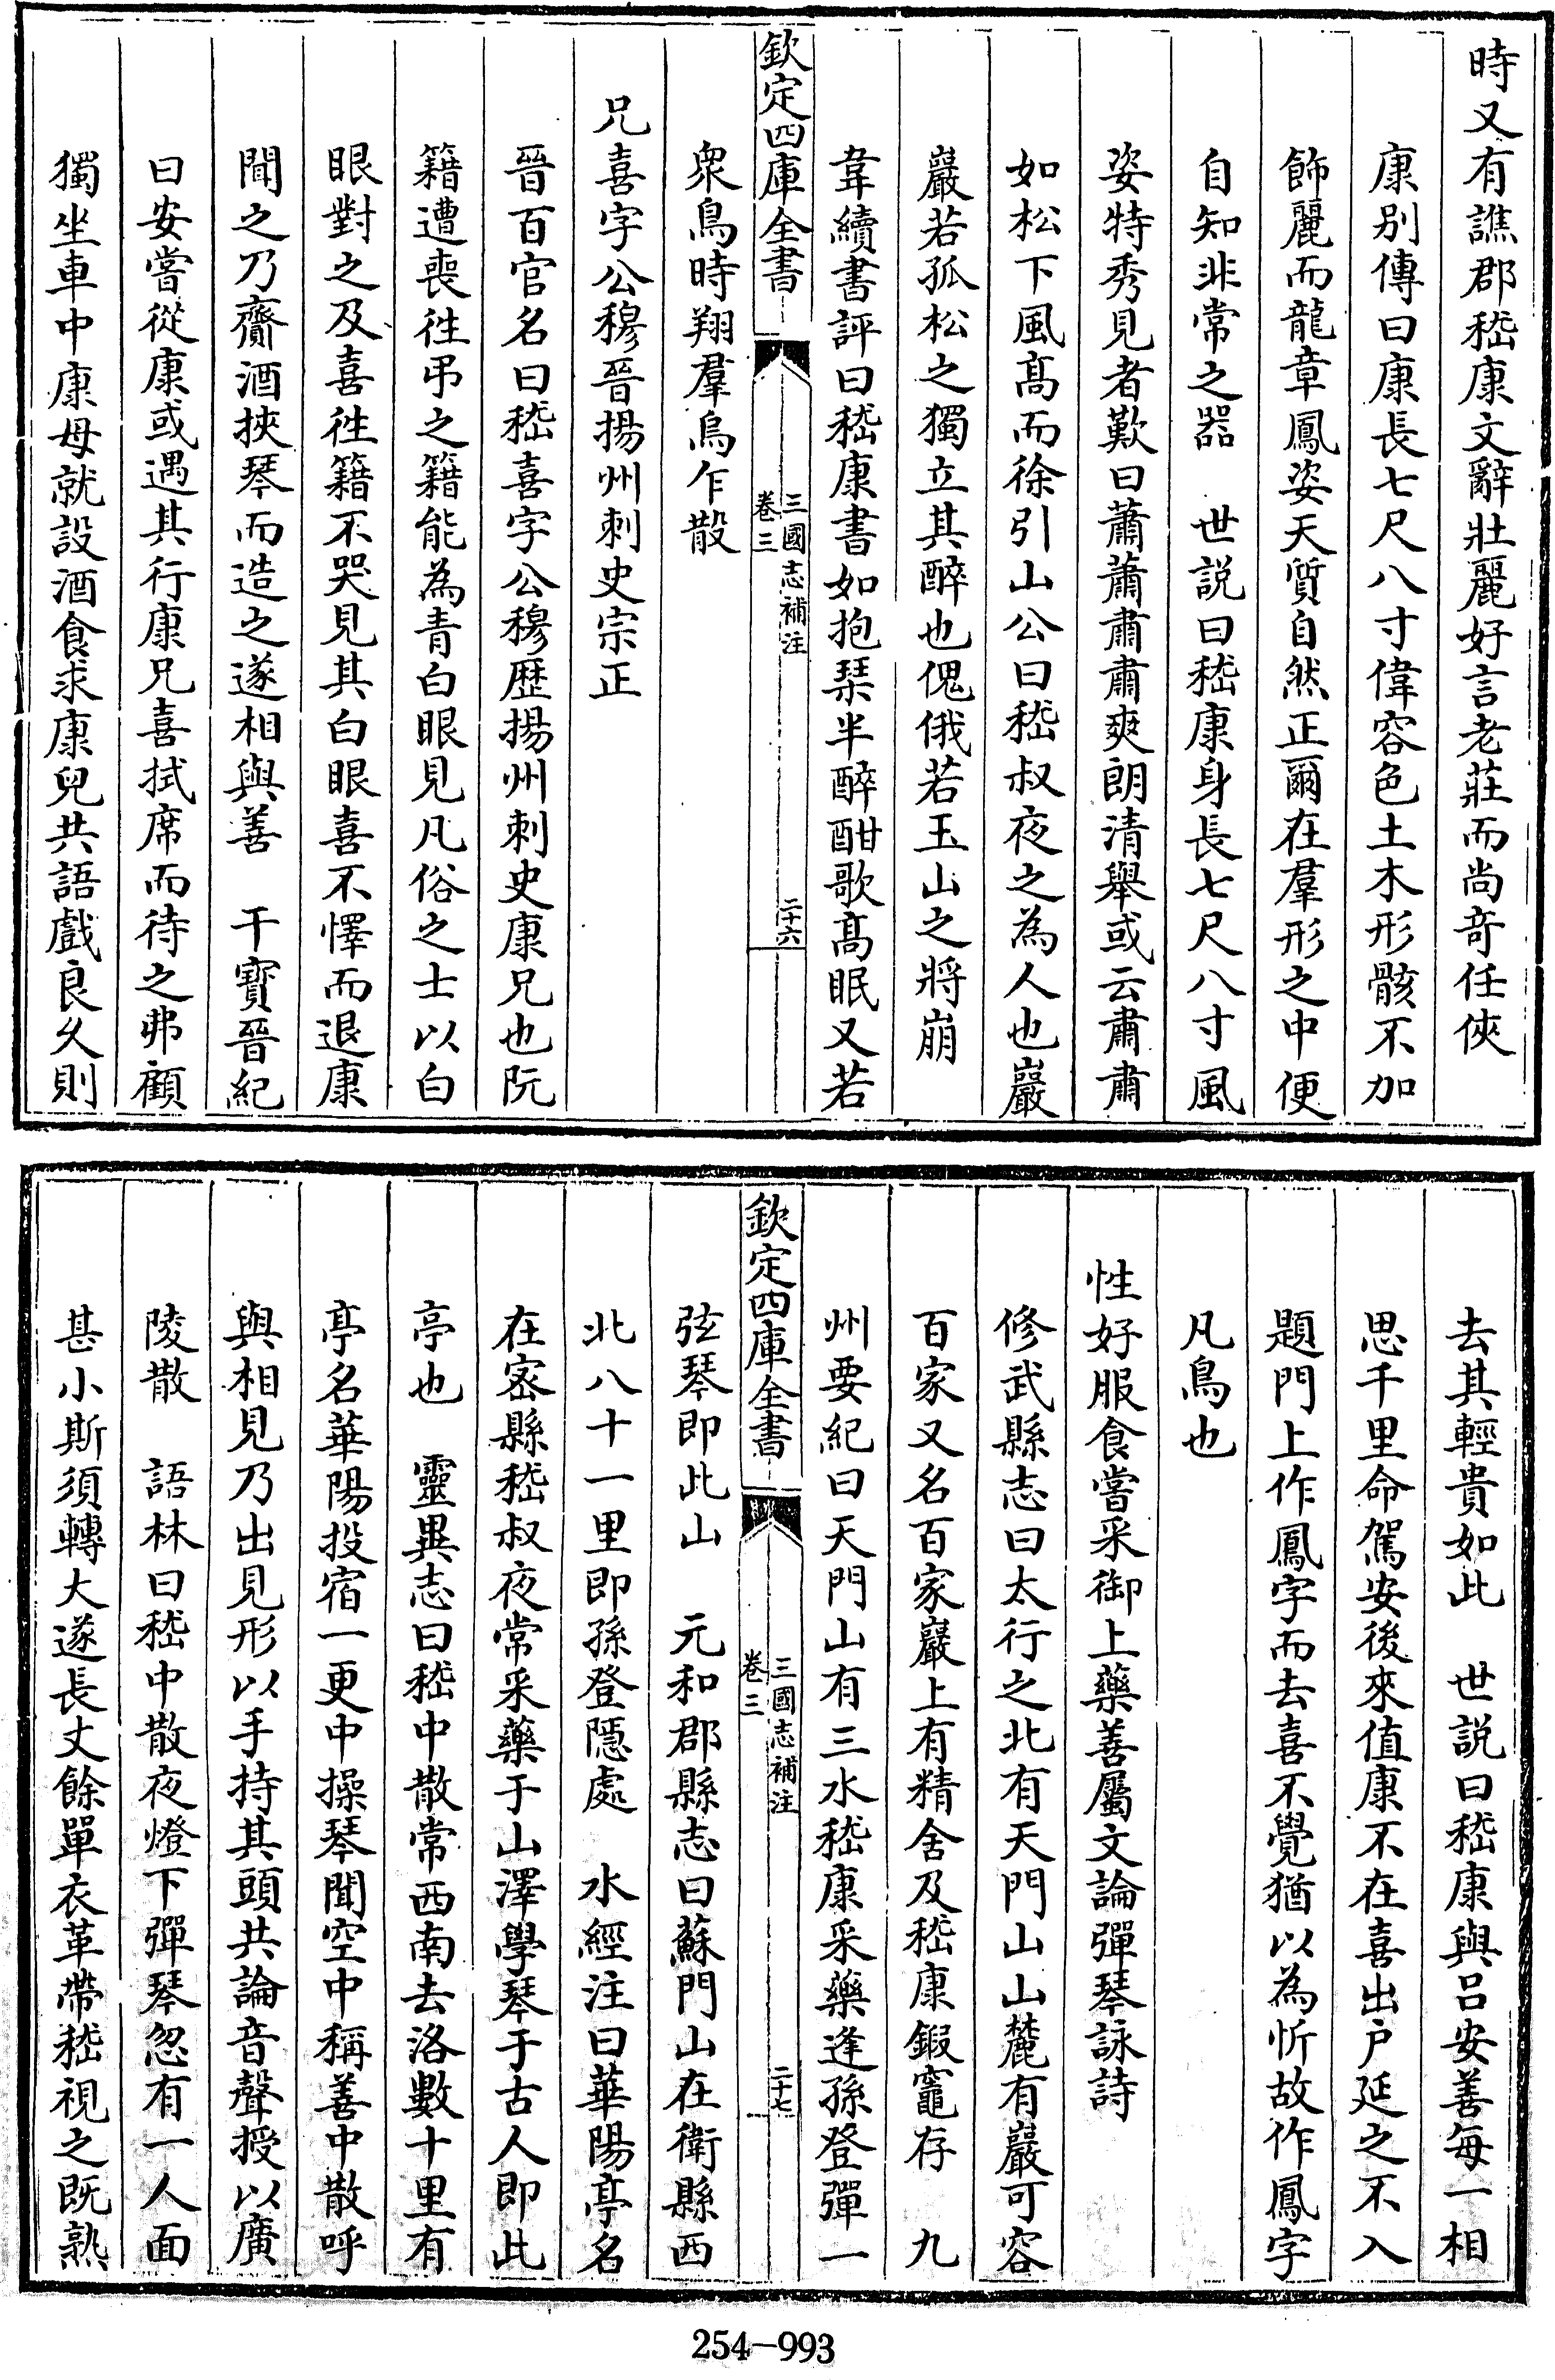 時又有譙郡嵇康文辭壯麗好言老莊而尚奇任俠
康别傳曰康長七尺八寸偉容色土木形骸不加
飾麗而龍章鳳姿天質自然正爾在羣形之中便
自知非常之器　世說曰嵇康身長七尺八寸風
姿特秀見者歎曰蕭蕭肅肅爽朗清舉或云肅肅
如松下風髙而徐引山公曰嵇叔夜之為人也巖
巖若孤松之獨立其醉也傀俄若玉山之將崩
韋續書評曰嵇康書如抱琹半醉酣歌髙眠又若
欽定四庫全書
三國志補注
卷三
二十六
衆鳥時翔羣烏乍散
兄喜字公穆晉揚州刺史宗正
晉百官名曰嵇喜字公穆歴揚州刺史康兄也阮
籍遭喪徃弔之籍能為青白眼見凡俗之士以白
眼對之及喜徃籍不哭見其白眼喜不懌而退康
聞之乃齎酒挾琴而造之遂相與善　干寶晉紀
曰安嘗從康或遇其行康兄喜拭席而待之弗顧
獨坐車中康母就設酒食求康兒共語戲良久則
去其輕貴如此　世說曰嵇康與吕安善每一相
思千里命駕安後來值康不在喜出户延之不入
題門上作鳳字而去喜不覺猶以為忻故作鳳字
凡鳥也
性好服食嘗采御上藥善屬文論彈琴詠詩
修武縣志曰太行之北有天門山山麓有巖可容
百家又名百家巖上有精舍及嵇康鍜竈存　九
州要紀曰天門山有三水嵇康采藥逢孫登彈一
欽定四庫全書
三國志補注
卷三
二十七
弦琴即此山　元和郡縣志曰蘇門山在衛縣西
北八十一里即孫登隱處　水經注曰華陽亭名
在宻縣嵇叔夜常采藥于山澤學琴于古人即此
亭也　靈異志曰嵇中散常西南去洛數十里有
亭名華陽投宿一更中操琴聞空中稱善中散呼
與相見乃出見形以手持其頭共論音聲授以廣
陵散　語林曰嵇中散夜燈下彈琴忽有一人面
甚小斯須轉大遂長丈餘單衣革帶嵇視之既熟
254-993